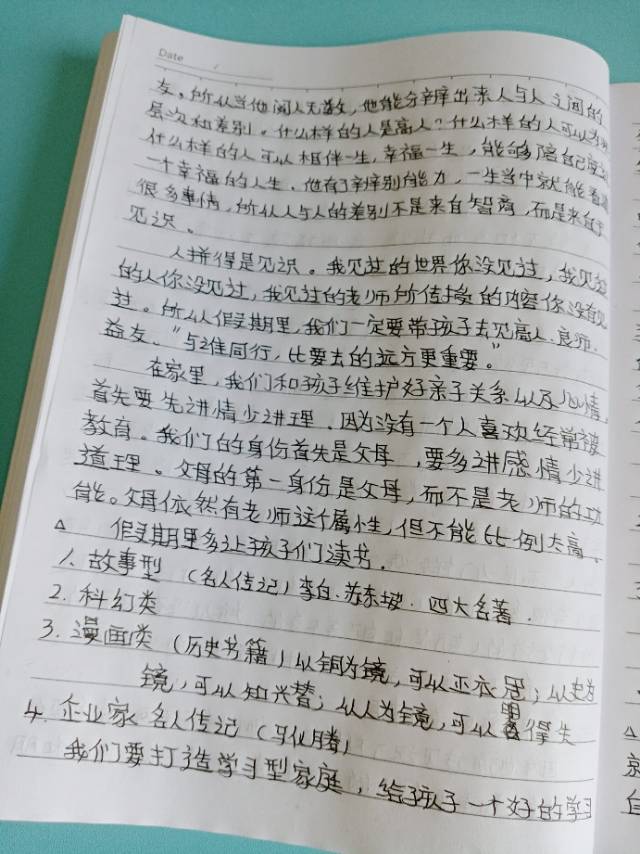 Date
友。所以当他阅人无数，他能分辨出来人与人之间的
层次和差别。什么样的人是高人？什么样的人可以为
什么样的人可以相伴一生，幸福一生，能够陪自己
一个幸福的人生。他有了辨别能力，一生当中就能看
很多事情，所以人与人的差别不是来自智商，而是来自于
见识。
人拼得是见识。我见过的世界你没见过，我见过
的人你没见过，我见过的老师所传授的内容你没有见
过。所以假期里，我们一定要带孩子去见高人、良师、
益友。"与谁同行，比要去的远方更重要。"
在家里，我们和孩子维护好亲子关系以及心情，
首先要先讲情少讲理，因为没有一个人喜欢经常被
教育。我们的身份首先是父母，要多讲感情少讲
道理。父母的第一身份是父母，而不是老师的功
能。父母依然有老师这个属性，但不能比例太高。
△ 假期里多让孩子们读书.
1. 故事型 （名人传记）李白·苏东坡·四大名著.
2. 科幻类
3. 漫画类（历史书籍）以铜为镜，可以正衣冠；以史为
镜，可以知兴替；以人为镜，可以明得失
4. 企业家 名人传记（马化腾）
我们要打造学习型家庭，给孩子一个好的学习
△
就
自